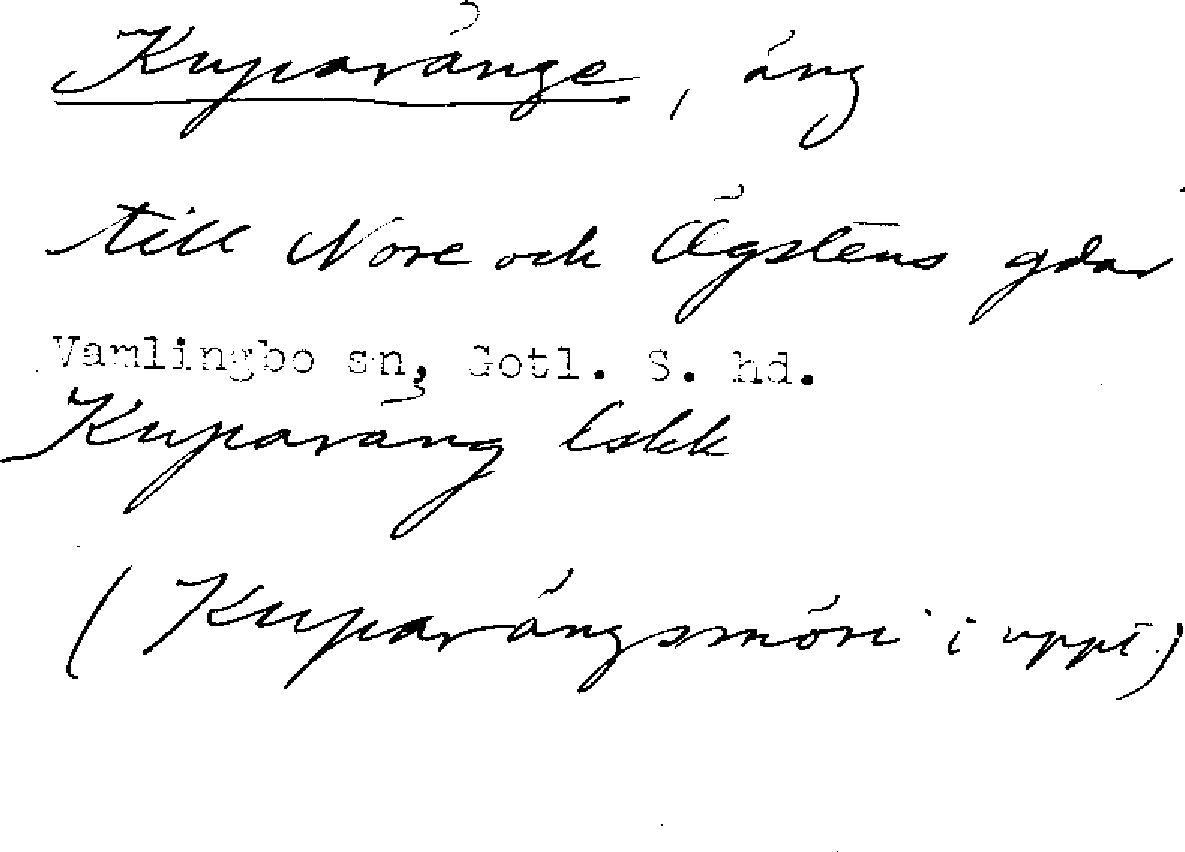 Kuparänge, äng
till Nore och Ägstens gdar
Vamlingbo sn, Gotl. S. hd.
Kuparäng Eskk
(Kuparängsmöri i uppt.)